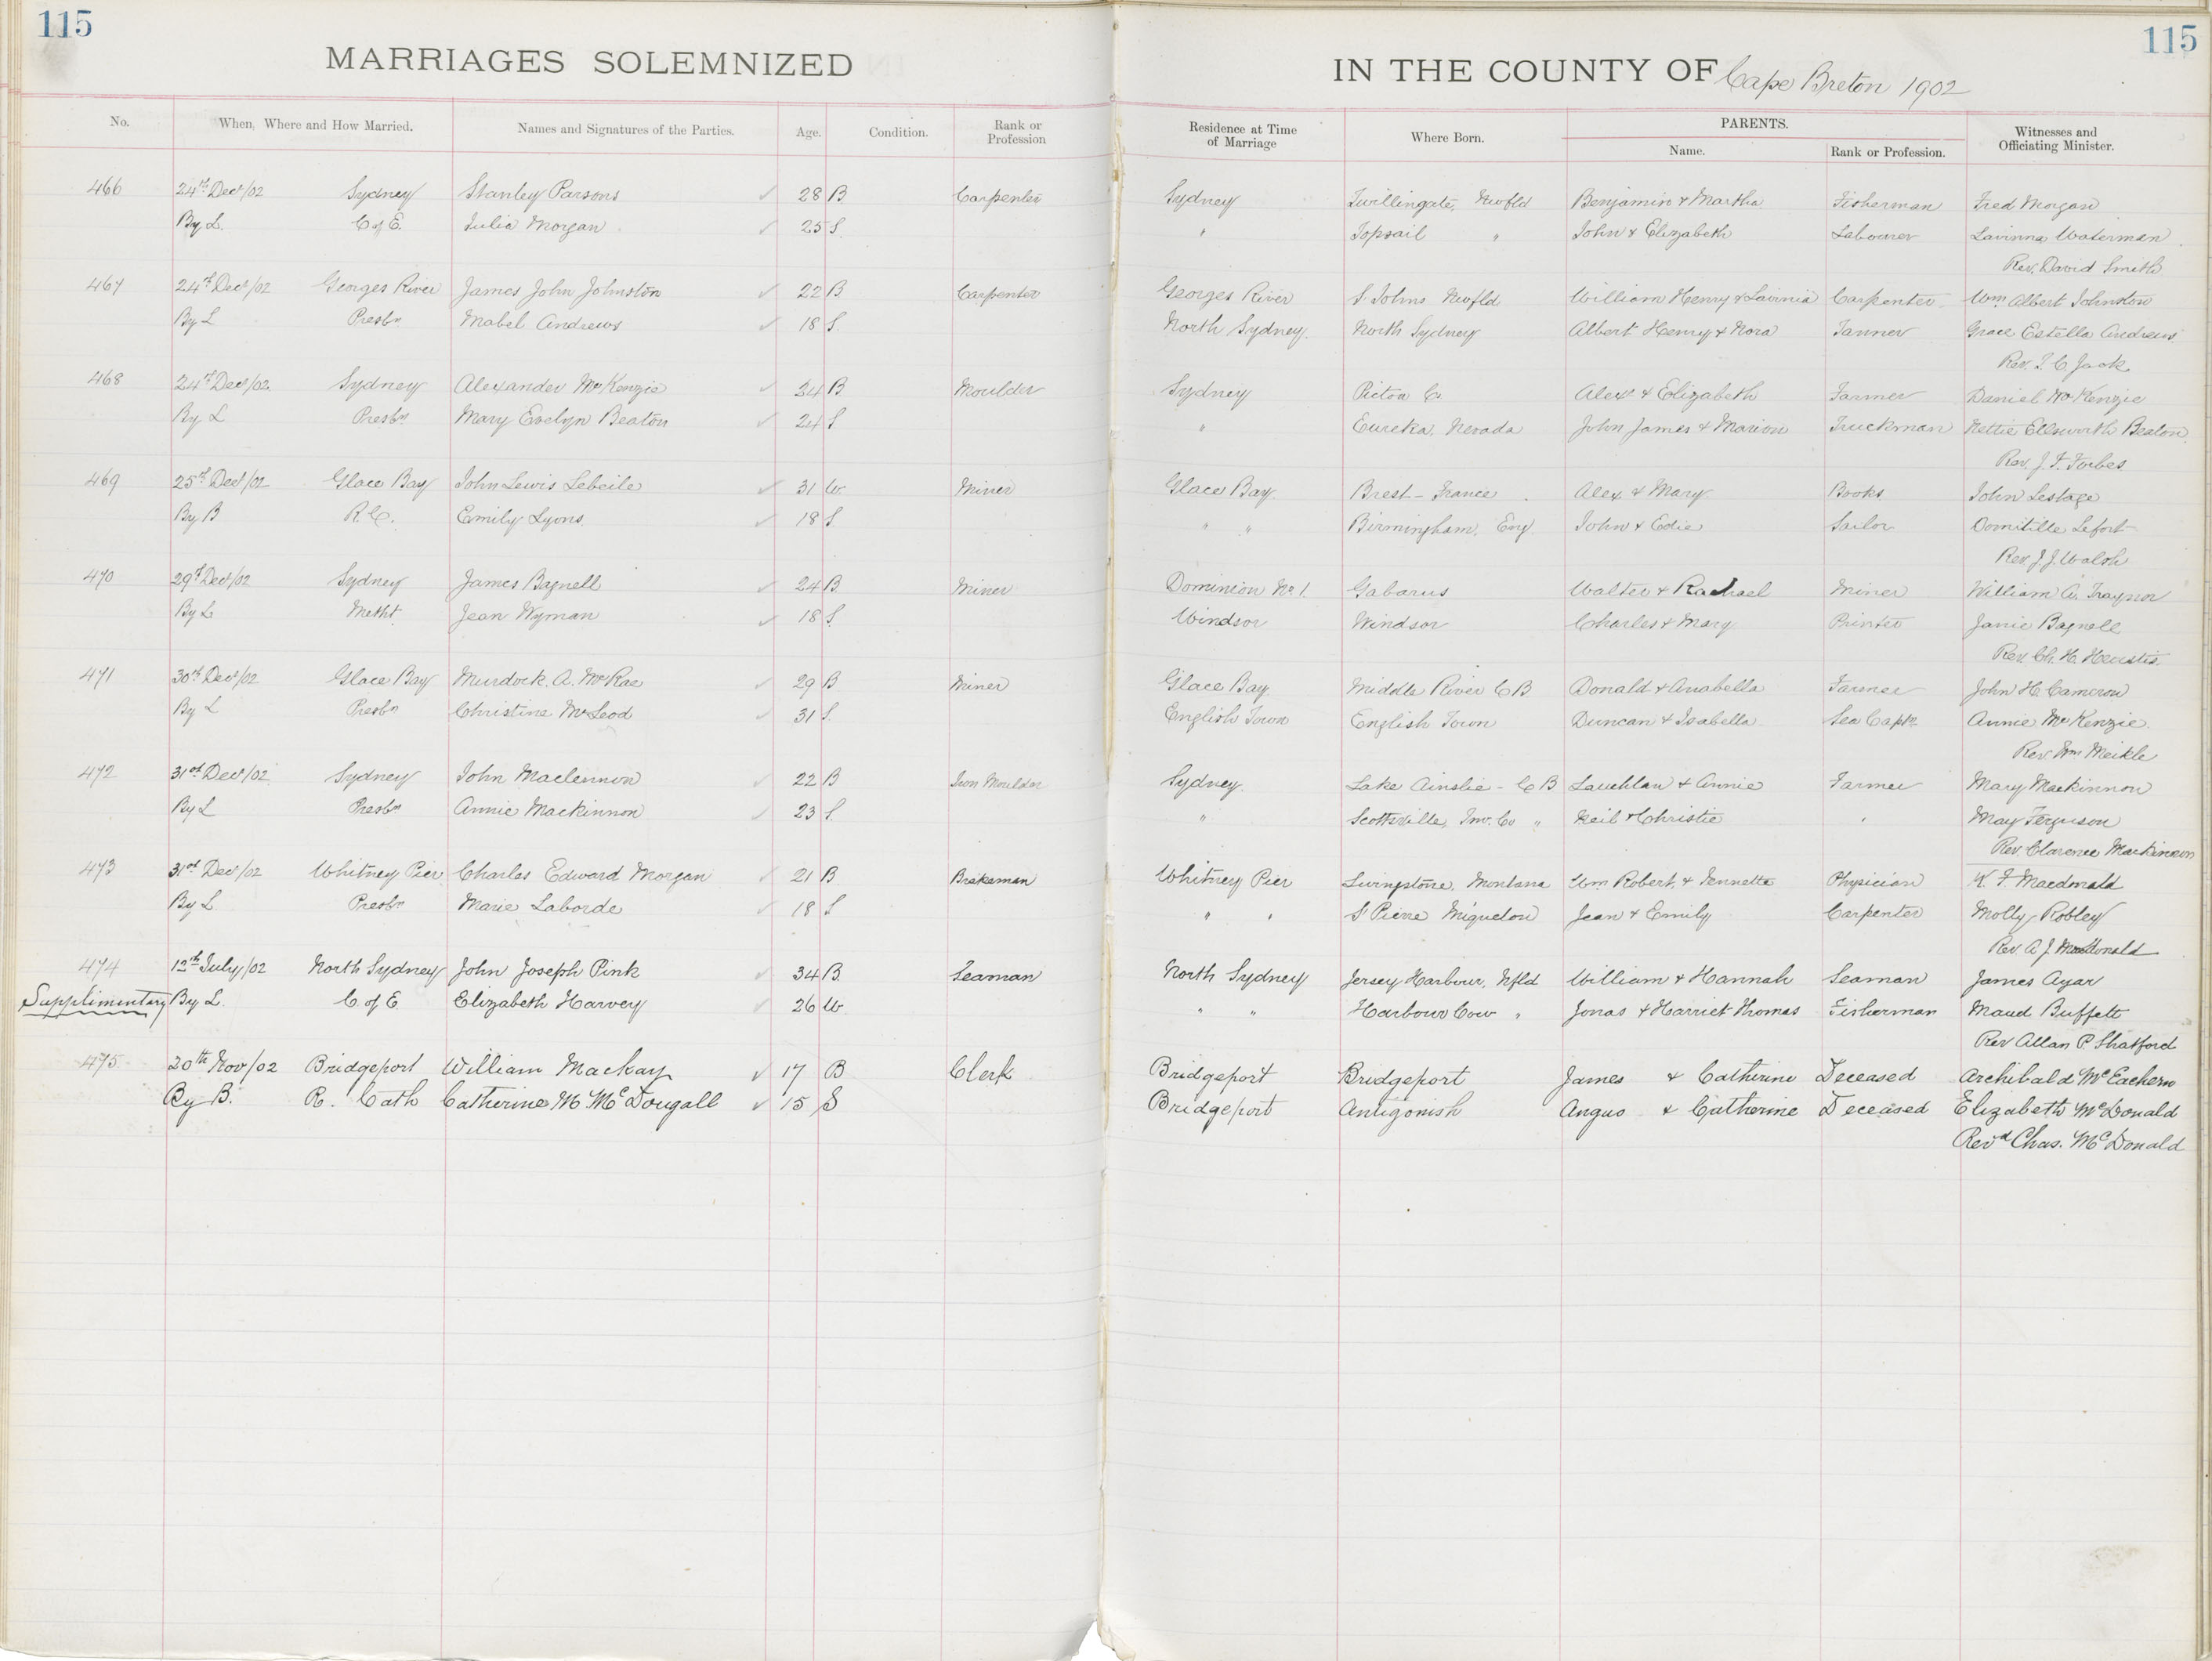 115
115
MARRIAGES SOLEMNIZED IN THE COUNTY OF Cape Breton 1902
No. When, Where and How Married. Names and Signatures of the Parties. Age. Condition. Rank or Profession Residence at Time of Marriage Where Born. PARENTS. Name. Rank or Profession. Witnesses and Officiating Minister.
466 24th Decr/02 Sydney Stanley Parsons 28 B. Carpenter Sydney Twillingate, Newfld Benjamin & Martha Fisherman Fred Morgan
By L. C of E. Julia Morgan 25 S. " Topsail " John & Elizabeth Labourer Lavinna Waterman
Rev. David Smith
467 24th Decr/02 Georges River James John Johnston 22 B Carpenter Georges River St Johns Newfld William Henry & Lavinia Carpenter Wm Albert Johnston
By L Presbn Mabel Andrews 18 S North Sydney. North Sydney Albert Henry & Nora Tanner Grace Estella Andrews
Rev. T. C. Jack
468 24th Decr/02 Sydney Alexander McKenzie 24 B Moulder Sydney Pictou Co Alexr & Elizabeth Farmer Daniel McKenzie
By L Presbn Mary Evelyn Beaton 24 S " Eureka, Nevada John James & Marion Truckman Nettie Ellsworth Beaton
Rev. J. F. Forbes
469 25th Decr/02 Glace Bay John Lewis Lebeile 31 W. Miner Glace Bay Brest - France Alex & Mary Books John Lestage
By B R.C. Emily Lyons 18 S " " Birmingham, Eng John & Edie Sailor Domitille Lefort
Rev J. J. Walsh
470 29th Decr/02 Sydney James Bagnell 24 B. Miner Dominion No 1. Gabarus Walter & Rachael Miner William A. Traynor
By L Metht. Jean Wyman 18 S. Windsor Windsor Charles & Mary Printer Janie Bagnell
Rev. Ch. H. Heustis
471 30th Decr/02 Glace Bay Murdock. A. McRae 29 B Miner Glace Bay Middle River C B Donald & Anabella Farmer John H. Cameron
By L Presbn Christine McLeod 31 S. English Town English Town Duncan & Isabella Sea Captn Annie McKenzie
Rev Wm Meikle
472 31st Decr/02 Sydney John Maclennon 22 B Iron Moulder Sydney Lake Ainslie - C B Lauchlan & Annie Farmer Mary Mackinnon
By L Presbn Annie Mackinnon 23 S. " Scottsville, Inv. Co " Neil & Christie " May Ferguson
Rev Clarence Mackinnon
473 31st Decr/02 Whitney Pier Charles Edward Morgan 21 B Brakeman Whitney Pier Livingstone, Montana Wm Robert & Nennette Physician K. F. Macdonald
By L Presbn Marie Laborde 18 S " " St Pierre Miquelon Jean & Emily Carpenter Molly Robley
Rev. A. J. MacDonald
474 12th July/02 North Sydney John Joseph Pink 34 B. Seaman North Sydney Jersey Harbour, Nfld William & Hannah Seaman James Ayar
Supplimentary By L. C. of E. Elizabeth Harvey 26 W. " " Harbour Cow " Jonas & Harriet Thomas Fisherman Maud Buffett
Rev Allan P. Shatford
475 20th Nov/02 Bridgeport William Mackay 17 B Clerk Bridgeport Bridgeport James & Catherine Deceased Archibald McEachern
By B. R. Cath Catherine M McDougall 15 S Bridgeport Antigonish Angus & Catherine Deceased Elizabeth McDonald
Revd Chas. McDonald